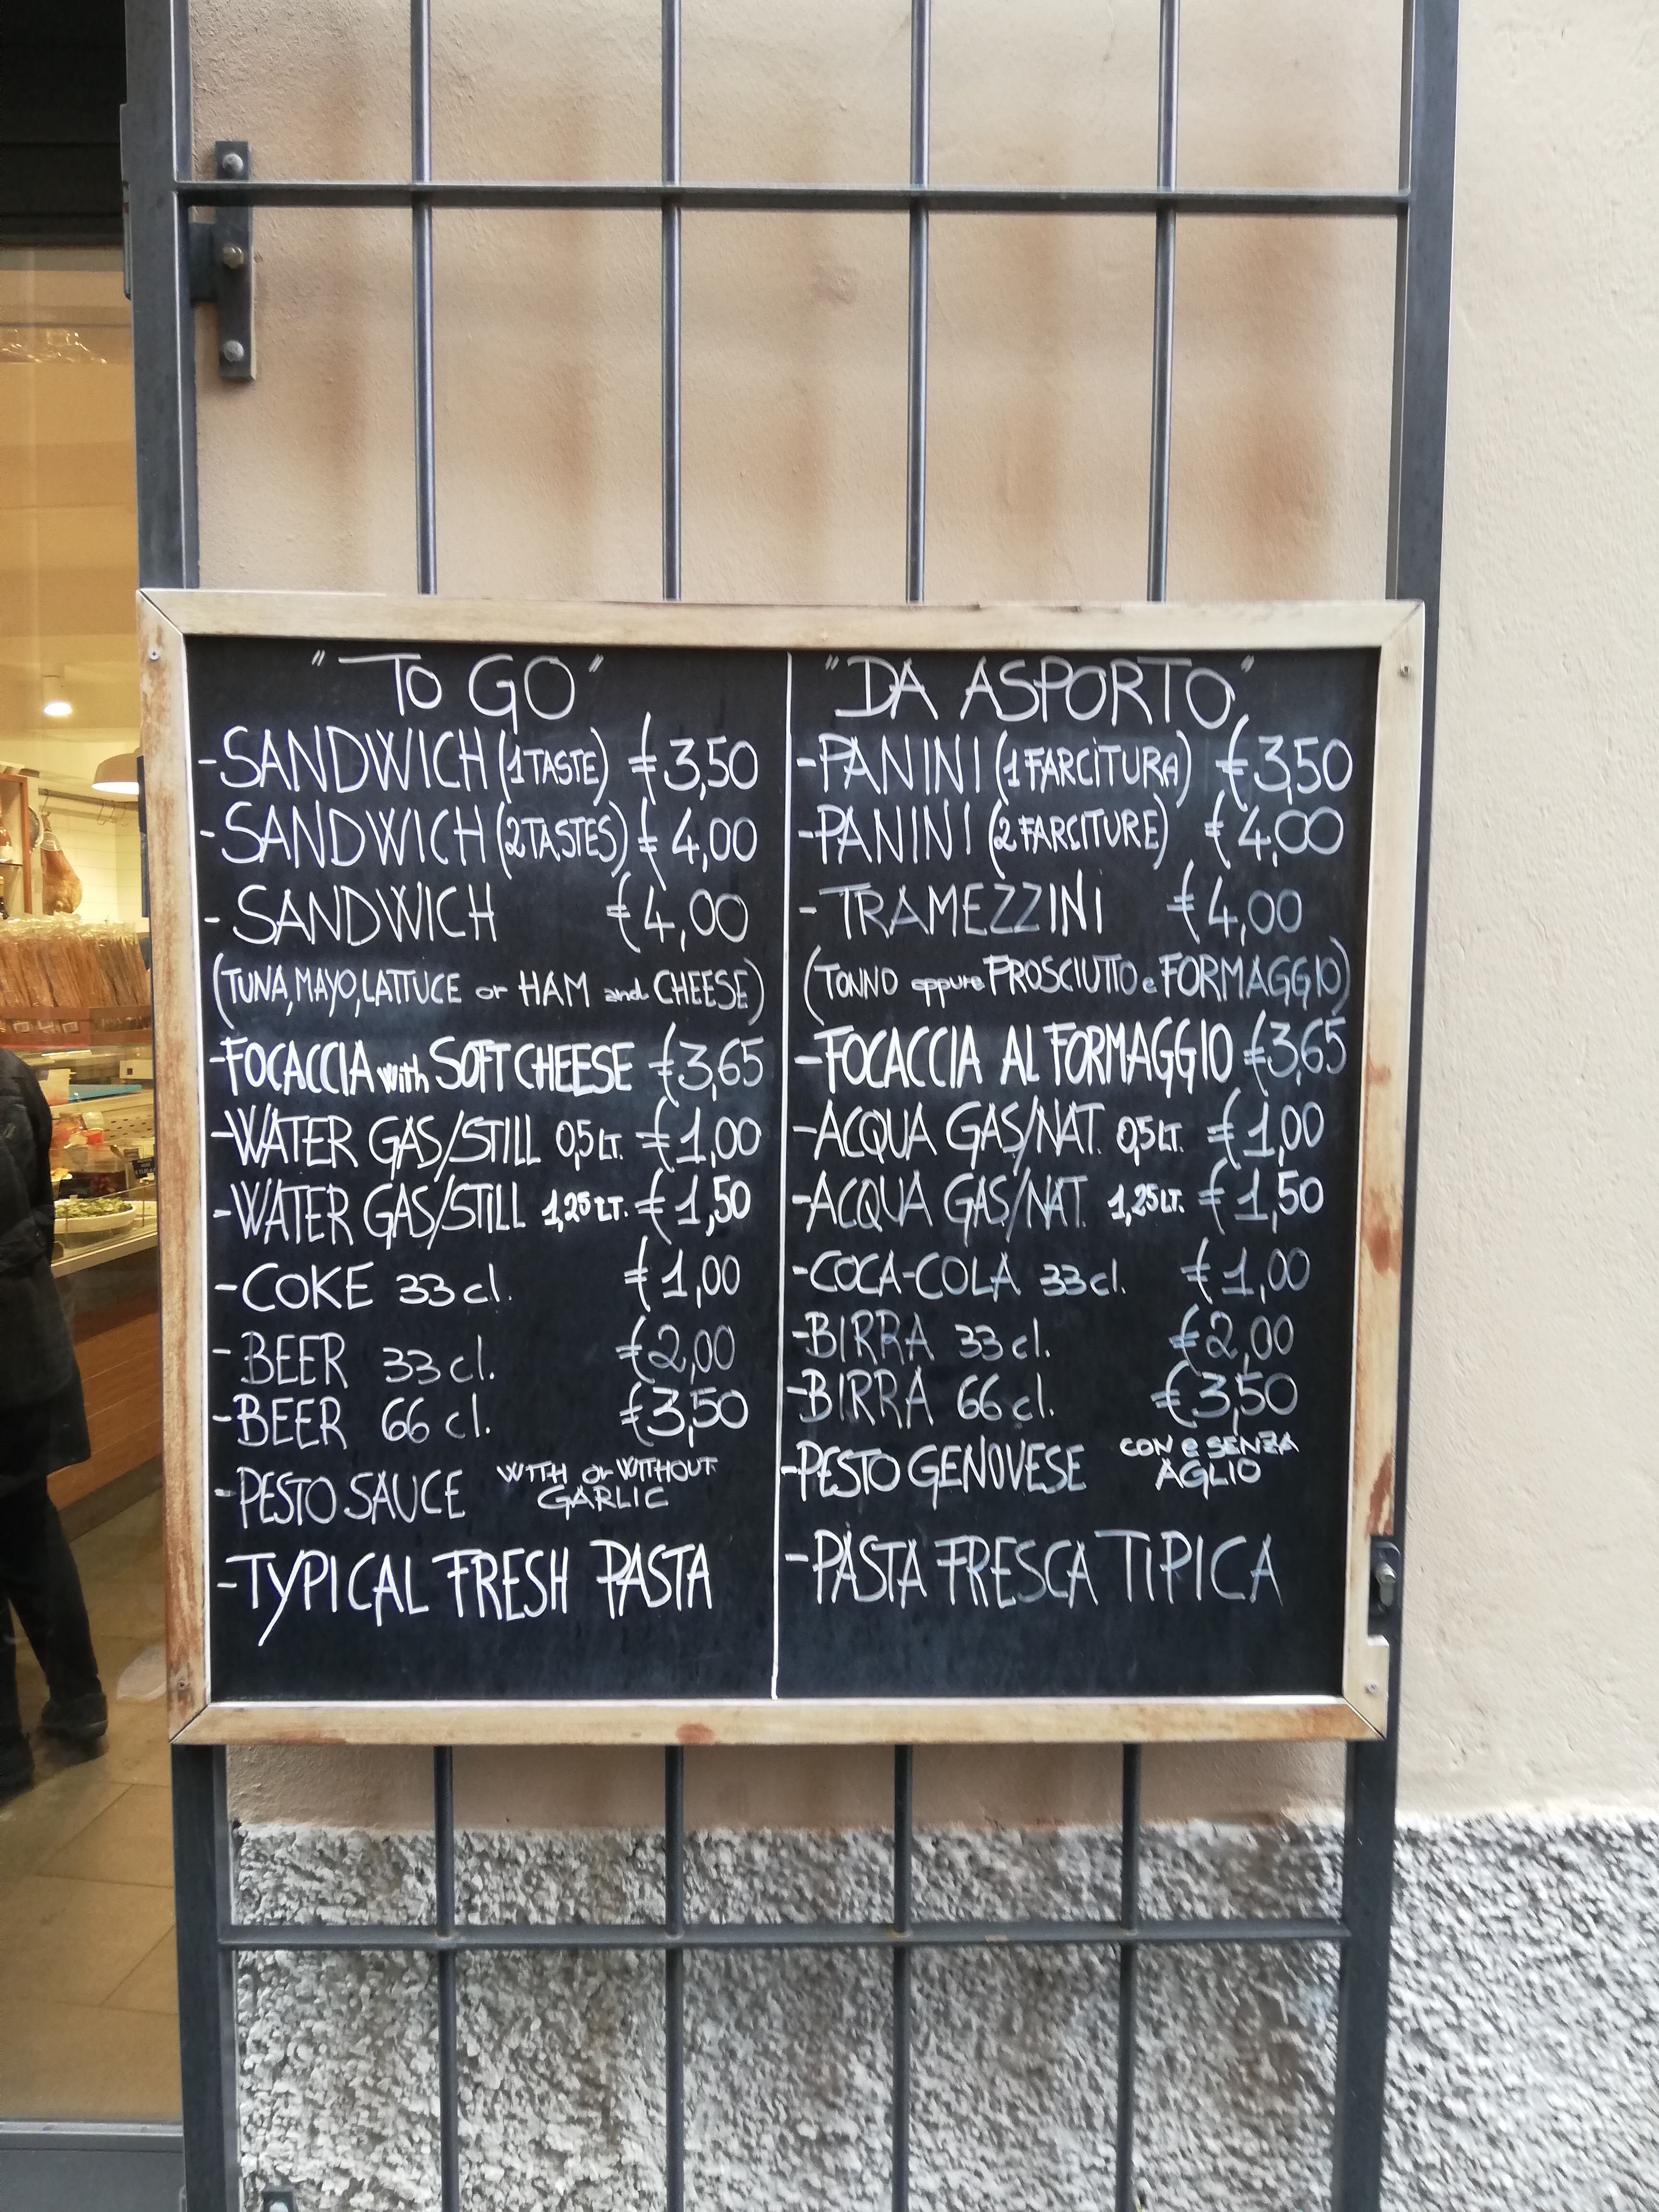 "TO GO"
-SANDWICH (1 TASTE) €3,50
-SANDWICH (2 TASTES) € 4,00
- SANDWICH €4,00
(TUNA, MAYO, LATTUCE or HAM and CHEESE)
-FOCACCIA with SOFT CHEESE €3,65
-WATER GAS/STILL 0,5 LT. €1,00
-WATER GAS/STILL 1,25 LT. €1,50
-COKE 33 cl. €1,00
- BEER 33 cl. €2,00
-BEER 66 cl. €3,50
-PESTO SAUCE WITH or WITHOUT
GARLIC
-TYPICAL FRESH PASTA
"DA ASPORTO"
-PANINI (1 FARCITURA) €3,50
-PANINI (2 FARCITURE) €4,00
- TRAMEZZINI €4,00
(TONNO oppure PROSCIUTTO e FORMAGGIO)
-FOCACCIA AL FORMAGGIO €3,65
-ACQUA GAS/NAT. 0,5 LT. €1,00
-ACQUA GAS/NAT. 1,25 LT. €1,50
-COCA-COLA 33 cl. €1,00
-BIRRA 33 cl. €2,00
-BIRRA 66 cl. €3,50
-PESTO GENOVESE CON e SENZA
AGLIO
-PASTA FRESCA TIPICA